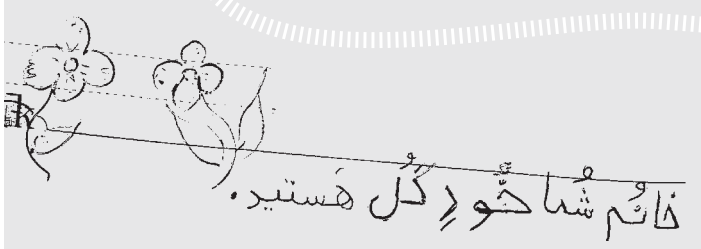 خانُم شُما خُّودِ گُل هَستید.